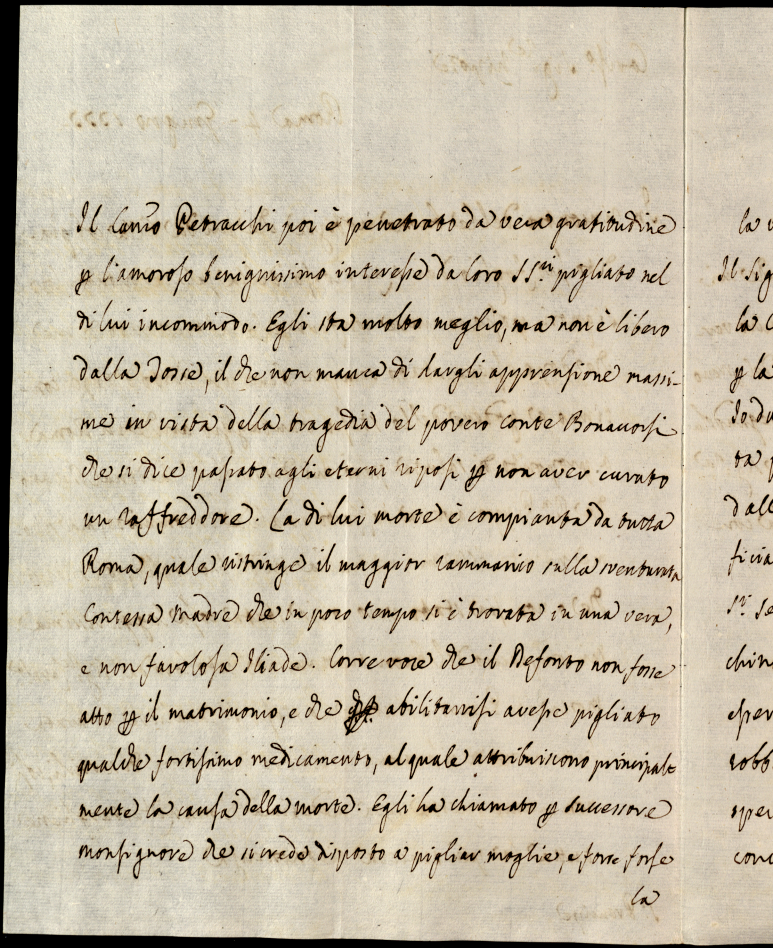 Il Can.co Petracchi poi è penetrato da vera gratitudine
p l'amoroso benignissimo interesse da loro SS.ri pigliato nel
di lui incommodo. Egli sta molto meglio, ma non è libero
dalla Tosse, il che non manca di dargli apprensione massi-
me in vista della tragedia del povero conte Bonacorsi
che si dice passato agli eterni riposi p non aver curato
un raffreddore. La di lui morte è compianta da tutta
Roma, quale ristringe il maggior rammarico sulla sventurata
Contessa Madre che in poco tempo si è trovata in una vera,
e non favolosa Iliade. Corre voce che il Defonto non fosse
atto p il matrimonio, e che abilitarvisi avesse pigliato
qualche fortissimo medicamento, al quale attribuiscono principal-
mente la causa della morte. Egli ha chiamato p successore
monsignore che si crede disposto a pigliar moglie, e forse forse
la
la
Il Sig
la
p la
Io du
ta
dall
ficia
S.r Se
chin
esper
robb
sper
conc